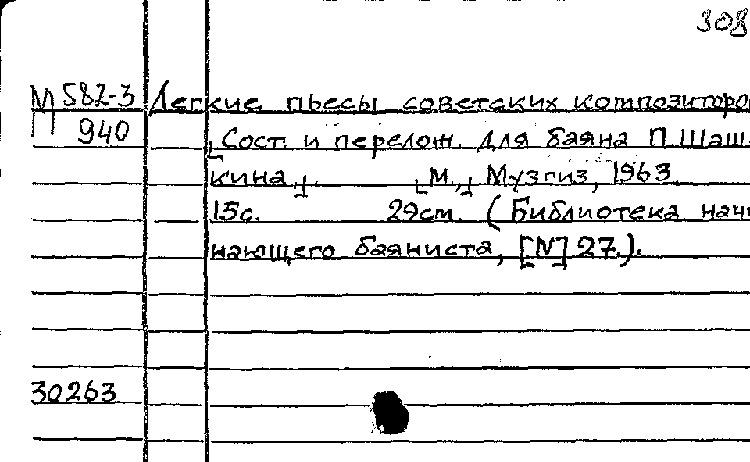 308
М 582-3 Легкие пьесы советских композиторов
П 940 [Сост. и перелож. для баяна П. Шаш-
кина]. [М.], Музгиз, 1963.
15с. 29см. (Библиотека начи-
нающего баяниста, [№] 27.).
30263